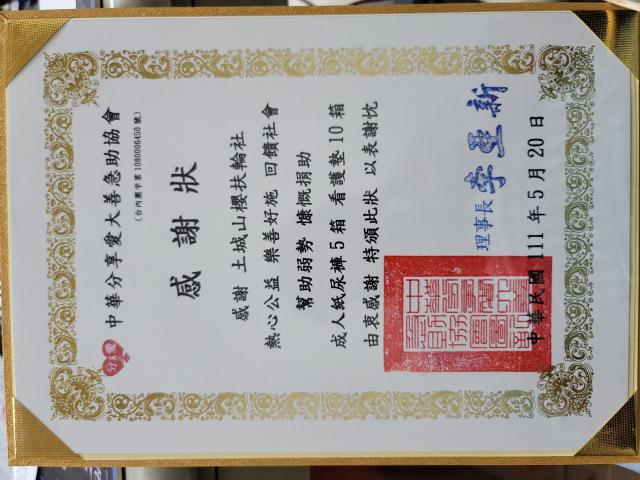 中華分享愛大善急助協會
(台內團字第1080006450號)
感謝狀
感謝 土城山櫻扶輪社
熱心公益 樂善好施 回饋社會
幫助弱勢 慷慨捐助
成人紙尿褲5箱 看護墊10箱
由衷感謝 特頒此狀 以表謝忱
理事長
中華民國 111 年 5 月 20 日